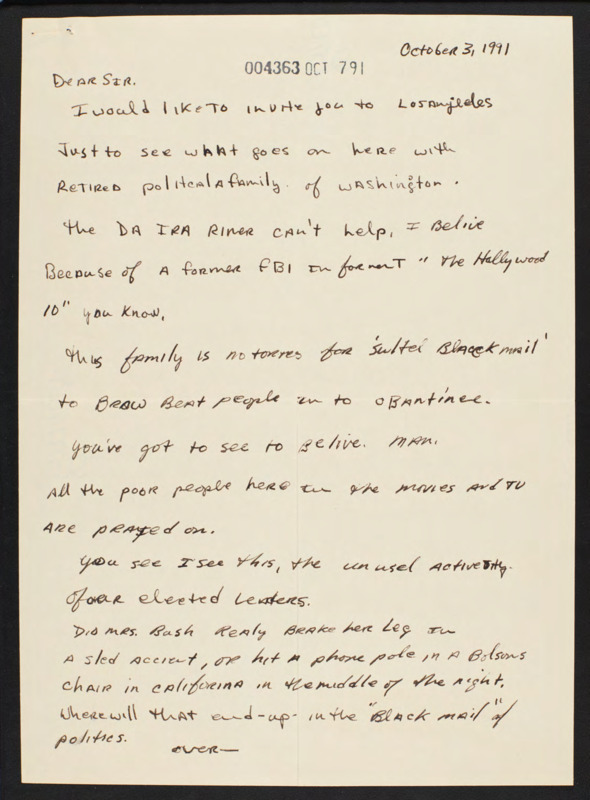 October 3, 1991
004363 OCT 791
DEAR SIR.
I would like TO invite you to LosAnjeles
Just to see what goes on here with
RETIRED politcal a family. of washington.
the DA IRA RINER can't help, I Belive
Because of A former FBI In formenT "The Hollywood
10" you know,
this family is notorres for 'sultel BLACK mail'
to BROW BEAT people in to oBantinee.
you've got to see to Belive. MAN.
All the poor people here in the movies and TV
ARE prayed on.
you see I see this, the unusel activetity.
of our elected Leaders.
Did MRS. Bush Realy BRAKE her Leg in
A sled accient, or hit A phone pole in A Bolsons
chair in califorina in the middle of the night.
Where will that end-up in the "Black mail" of
polities.
over—